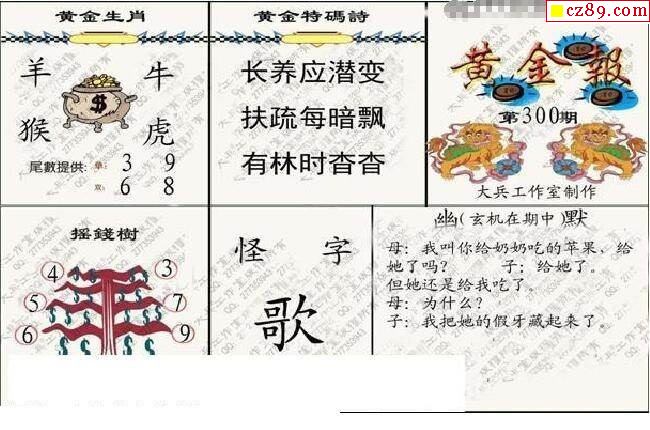 cz89.com
黄金生肖
羊 牛
$
猴 虎
尾數提供: 单: 3 9
双: 6 8
黄金特碼詩
长养应潜变
扶疏每暗飘
有林时杳杳
黄金報
第300期
大兵工作室制作
摇錢樹
4 3
5 7
6 9
怪 字
歌
幽(玄机在期中)默
母: 我叫你给奶奶吃的苹果、给
她了吗? 子: 给她了。
但她还是给我吃了。
母: 为什么?
子: 我把她的假牙藏起来了。